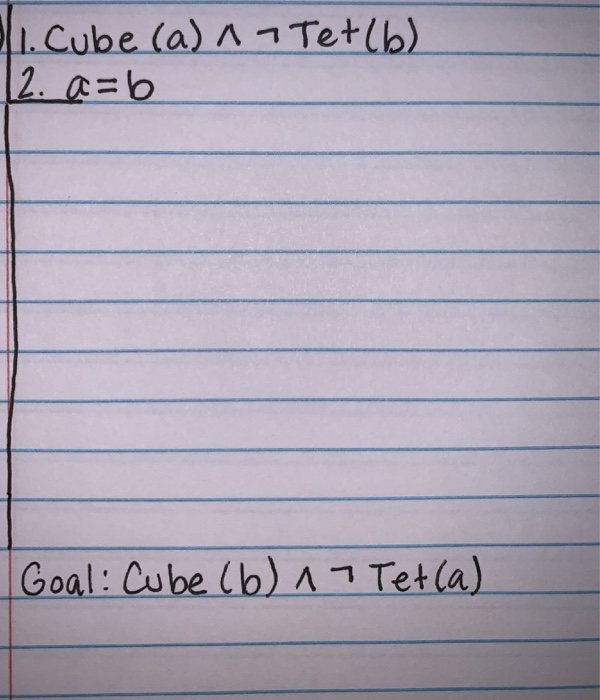 1. Cube (a) ∧ ¬ Tet (b)
2. a=b
Goal: Cube (b) ∧ ¬ Tet (a)